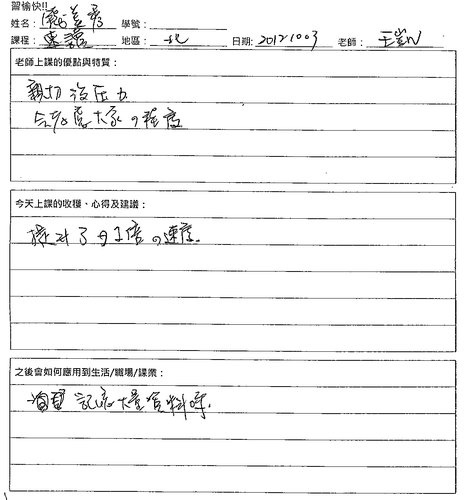 習愉快!!
姓名: 學號:
課程: 速讀 地區: 北 日期: 20121003 老師: 王
老師上課的優點與特質:
親切沒壓力
會考慮大家の程度
今天上課的收穫、心得及建議:
提升了 の速度.
之後會如何應用到生活/職場/課業:
記憶大量資料時.